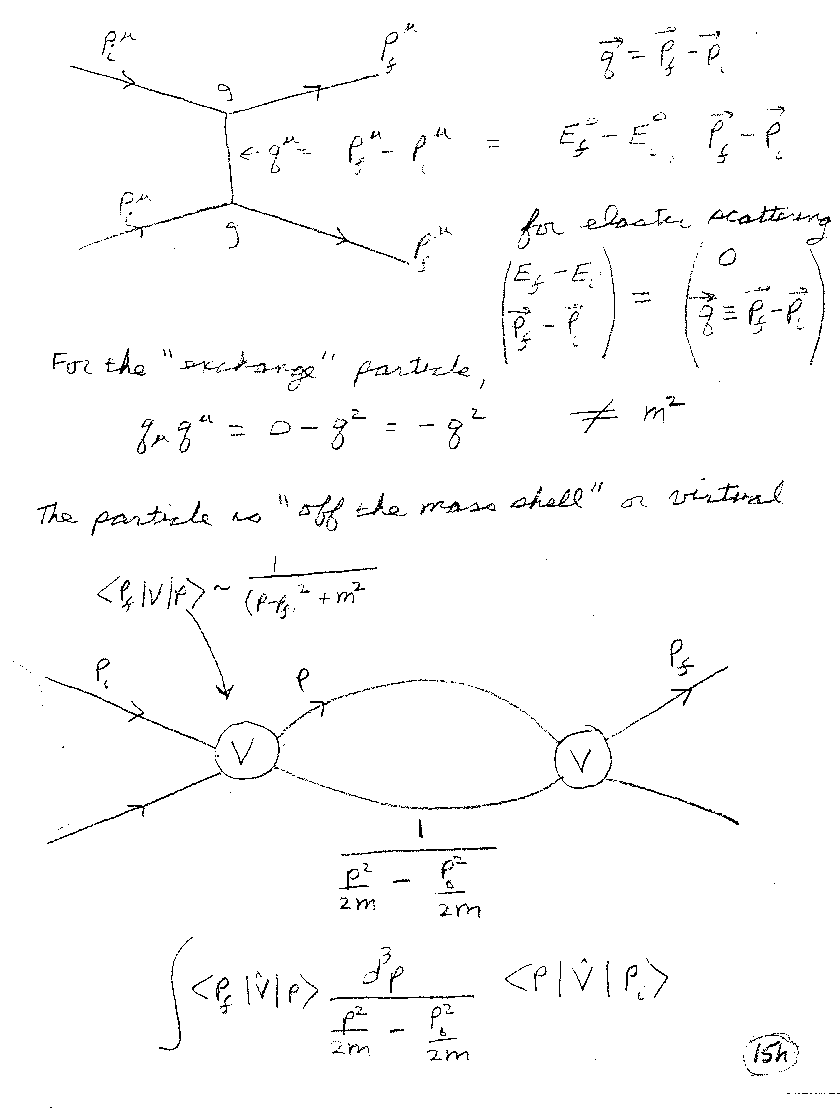 P_i^μ P_f^μ \vec{q} = \vec{P}_f - \vec{P}_i
g
← q^μ = P_f^μ - P_i^μ = E_f^0 - E_i^0, \vec{P}_f - \vec{P}_i
P_i^μ
g P_f^μ
for elastic scattering
(E_f - E_i
\vec{P}_f - \vec{P}_i) = (0
\vec{q} ≡ \vec{P}_f - \vec{P}_i)
For the "exchange" particle,
q_μ q^μ = 0 - q^2 = -q^2 ≠ m^2
The particle is "off the mass shell" or virtual
<P_f|V|P> ~ 1/((P-P_f)^2 + m^2)
P_i P P_f
V V
1/(P^2/2m - P_0^2/2m)
∫ <P_f|\hat{V}|P> d^3P/(P^2/2m - P_0^2/2m) <P|\hat{V}|P_i>
15h